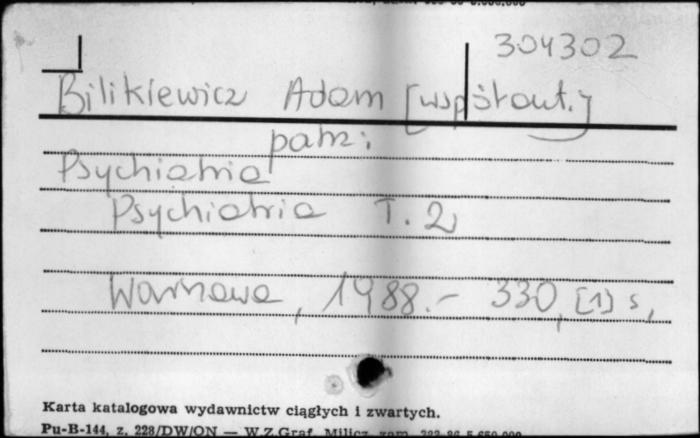 304302
Bilikiewicz Adam [współaut.]
patrz:
Psychiatria
Psychiatria T. 2
Warszawa, 1988.- 330, [1] s,
Karta katalogowa wydawnictw ciągłych i zwartych.
Pu-B-144, z. 228/DW/ON — W.Z.Graf. Milicz zam.